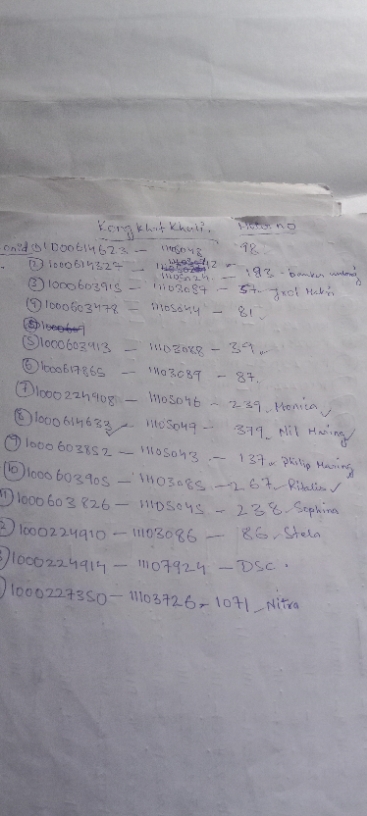 Kongkhit Khuli. Meter no
① 1000614623 – 11105048 98.
② 1000614327 – 11105024 – 193 -
③ 1000603915 – 11103087 – 57
④ 1000603478 – 11105044 – 81
⑤ 1000603913 – 11103088 – 39
⑥ 1000617865 – 11103089 – 87.
⑦ 1000224908 – 11105046 – 239, Monica ✓
⑧ 1000614633 – 11105049 – 379, Nil Maring
⑨ 1000603852 – 11105043 – 137 Philip Maring
⑩ 1000603905 – 11103085 – 267 ✓
11 1000603826 – 11105045 – 238 Sophina
1000224910 – 11103086 – 86, Stela
1000224914 – 11107924 – DSC.
1000227350 – 11103726 – 1071 – Nitra